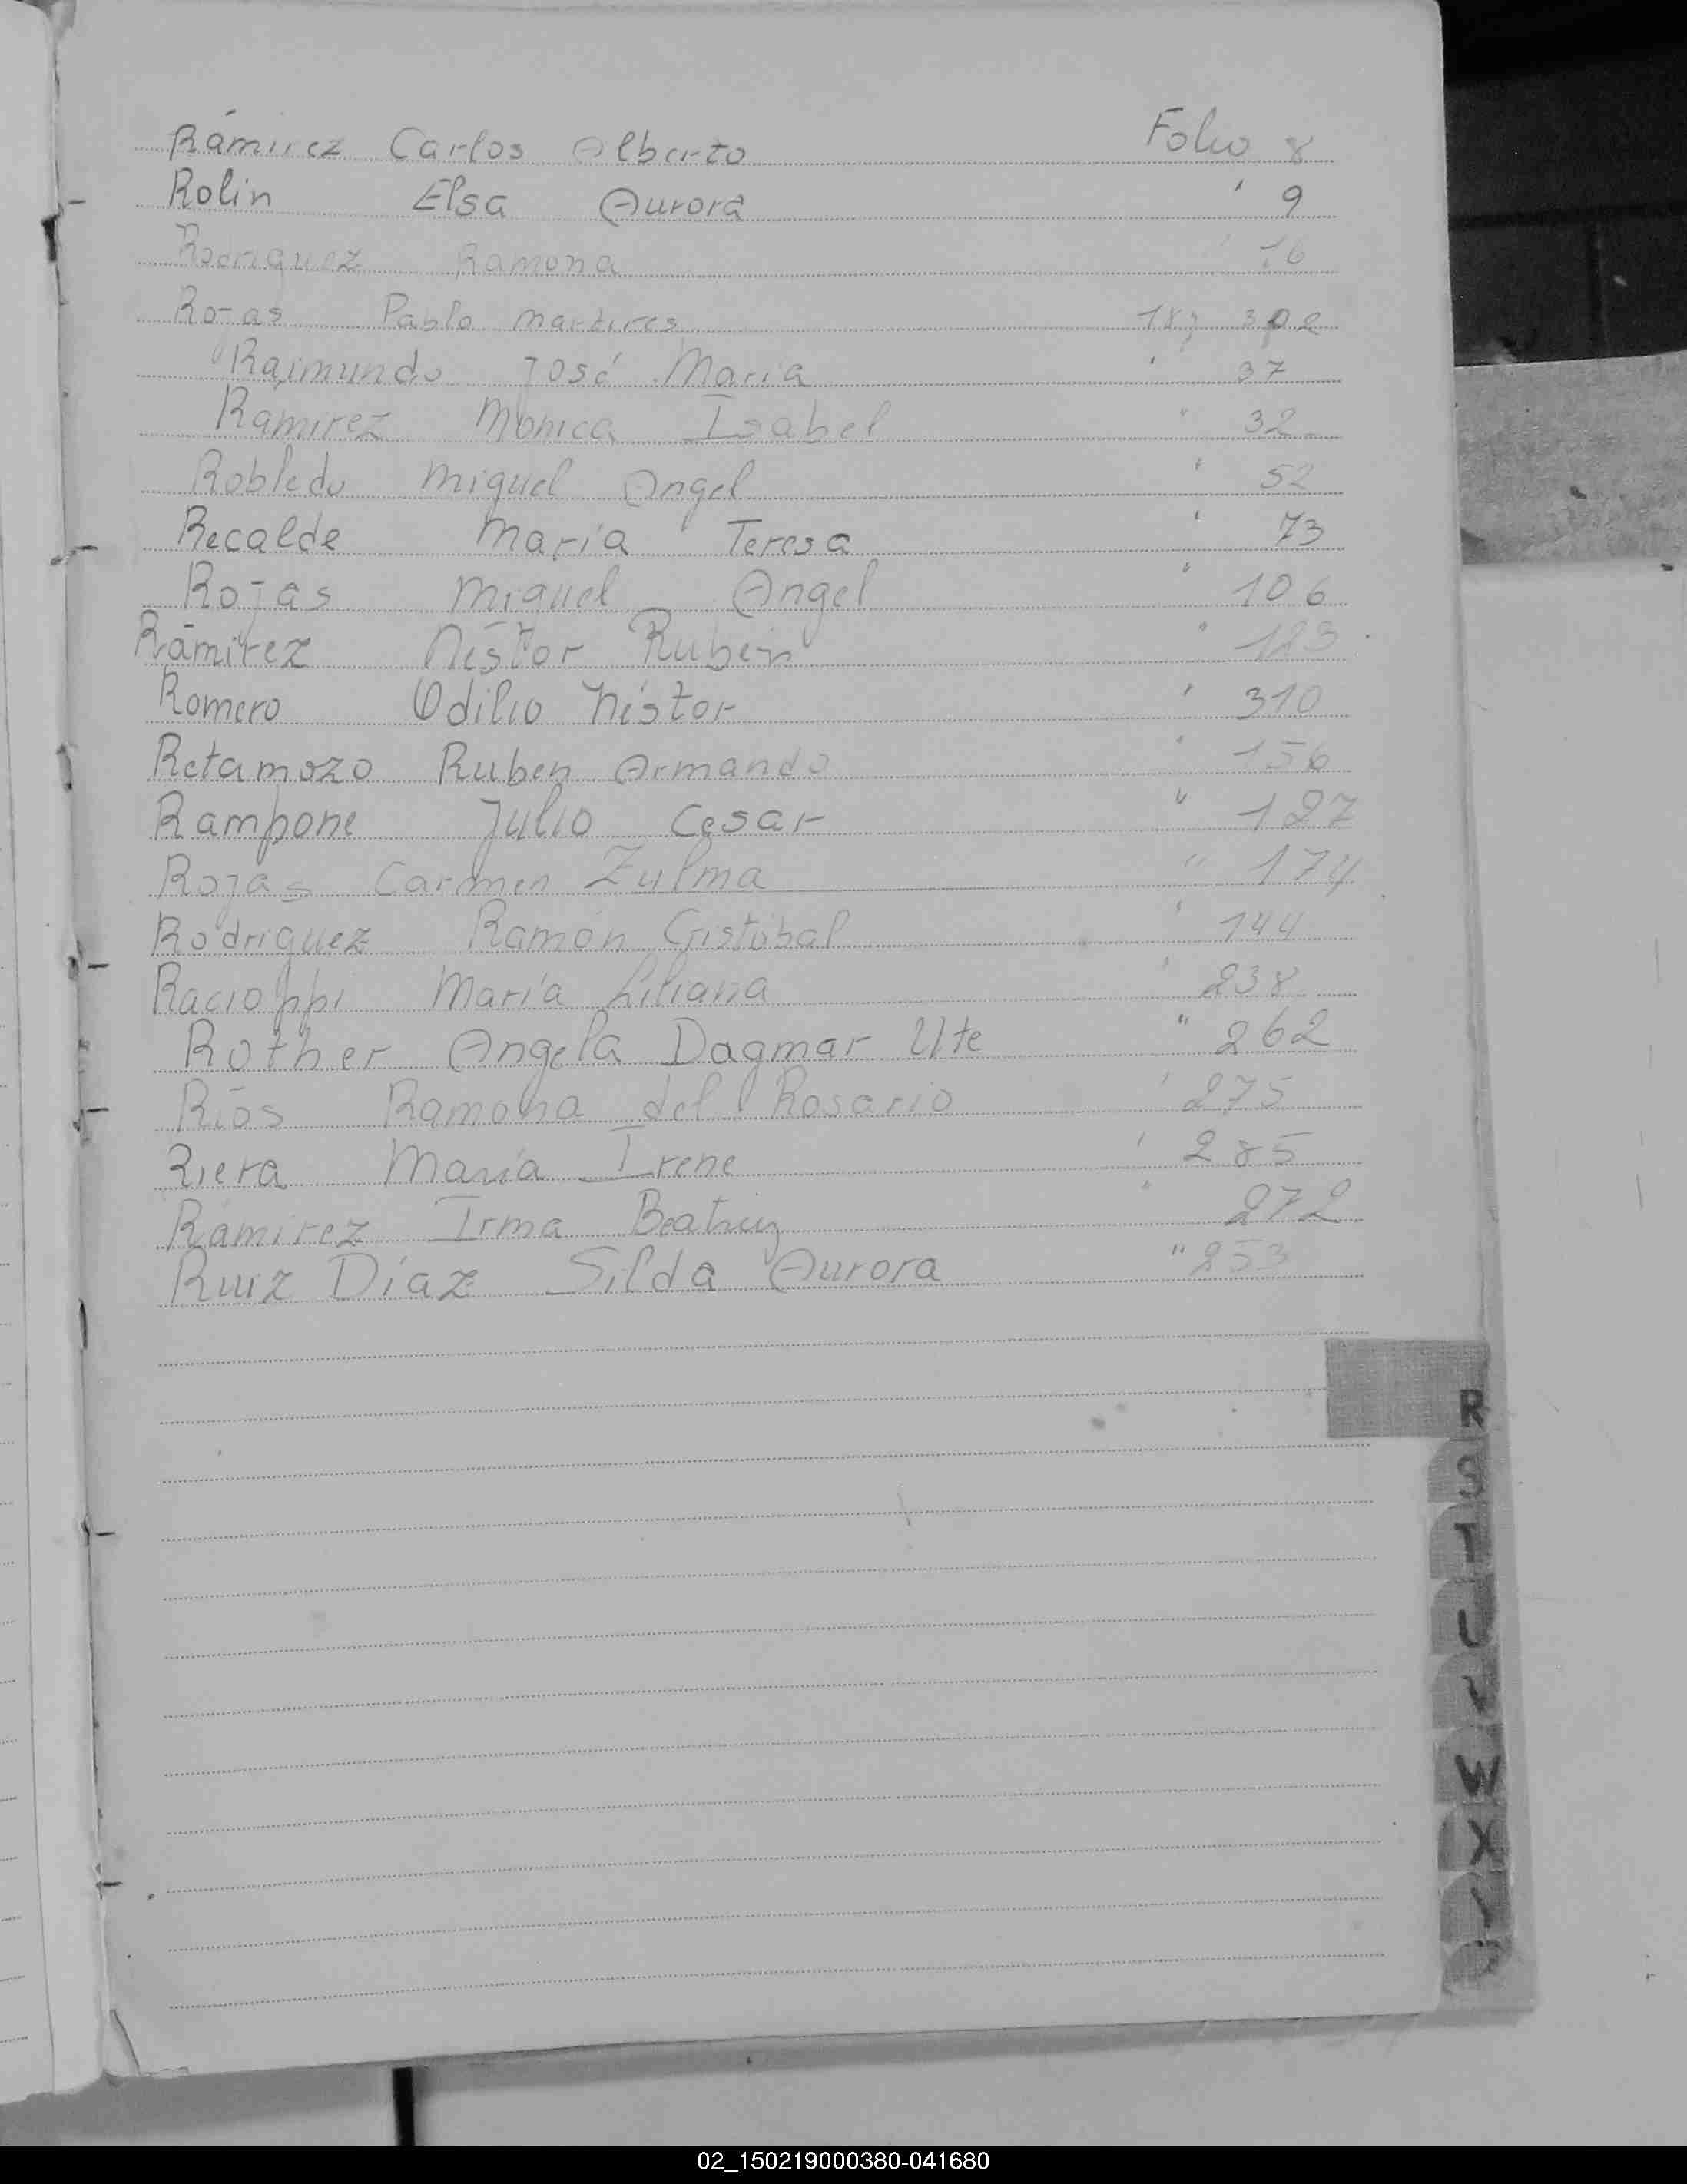 Ramírez Carlos Alberto Folio 8
Rolin Elsa Aurora " 9
Rodriguez Ramona " 16
Rojas Pablo Martires 18 y 302
Raimundo José Maria " 37
Ramirez Mónica Isabel " 32
Robledo Miguel Angel " 52
Recalde Maria Teresa " 73
Rojas Miguel Angel " 106
Ramirez Néstor Rubén " 123
Romero Odilio Néstor " 310
Retamozo Ruben Armando " 156
Rampone Julio Cesar " 127
Rojas Carmen Zulma " 174
Rodriguez Ramón Cristóbal " 144
Racioppi María Liliana " 238
Rother Angela Dagmar Ute " 262
Ríos Ramona del Rosario " 275
Riera María Irene " 285
Ramirez Irma Beatriz " 272
Ruiz Díaz Silda Aurora " 253
R
S
T
U
V
W
X
Y
02_150219000380-041680